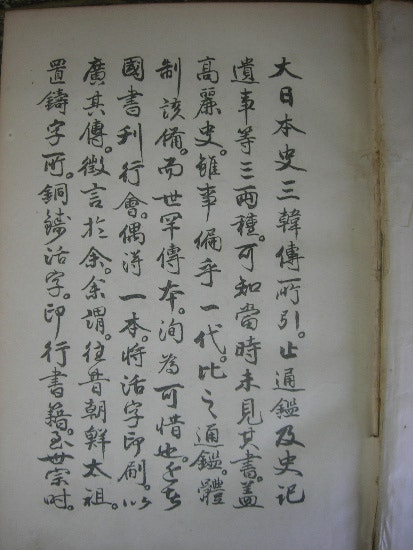 大日本史三韓傳所引。止通鑑及史記
遺事等三兩種。可知當時未見其書。蓋
高麗史。雖事偏乎一代。比之通鑑。體
制該備。而世罕傳本。洵為可惜也。近者
國書刊行會。偶得一本。將活字印刷。以
廣其傳。徵言於余。余謂。往昔朝鮮太祖。
置鑄字所。銅鑄活字。印行書籍。至世宗時。